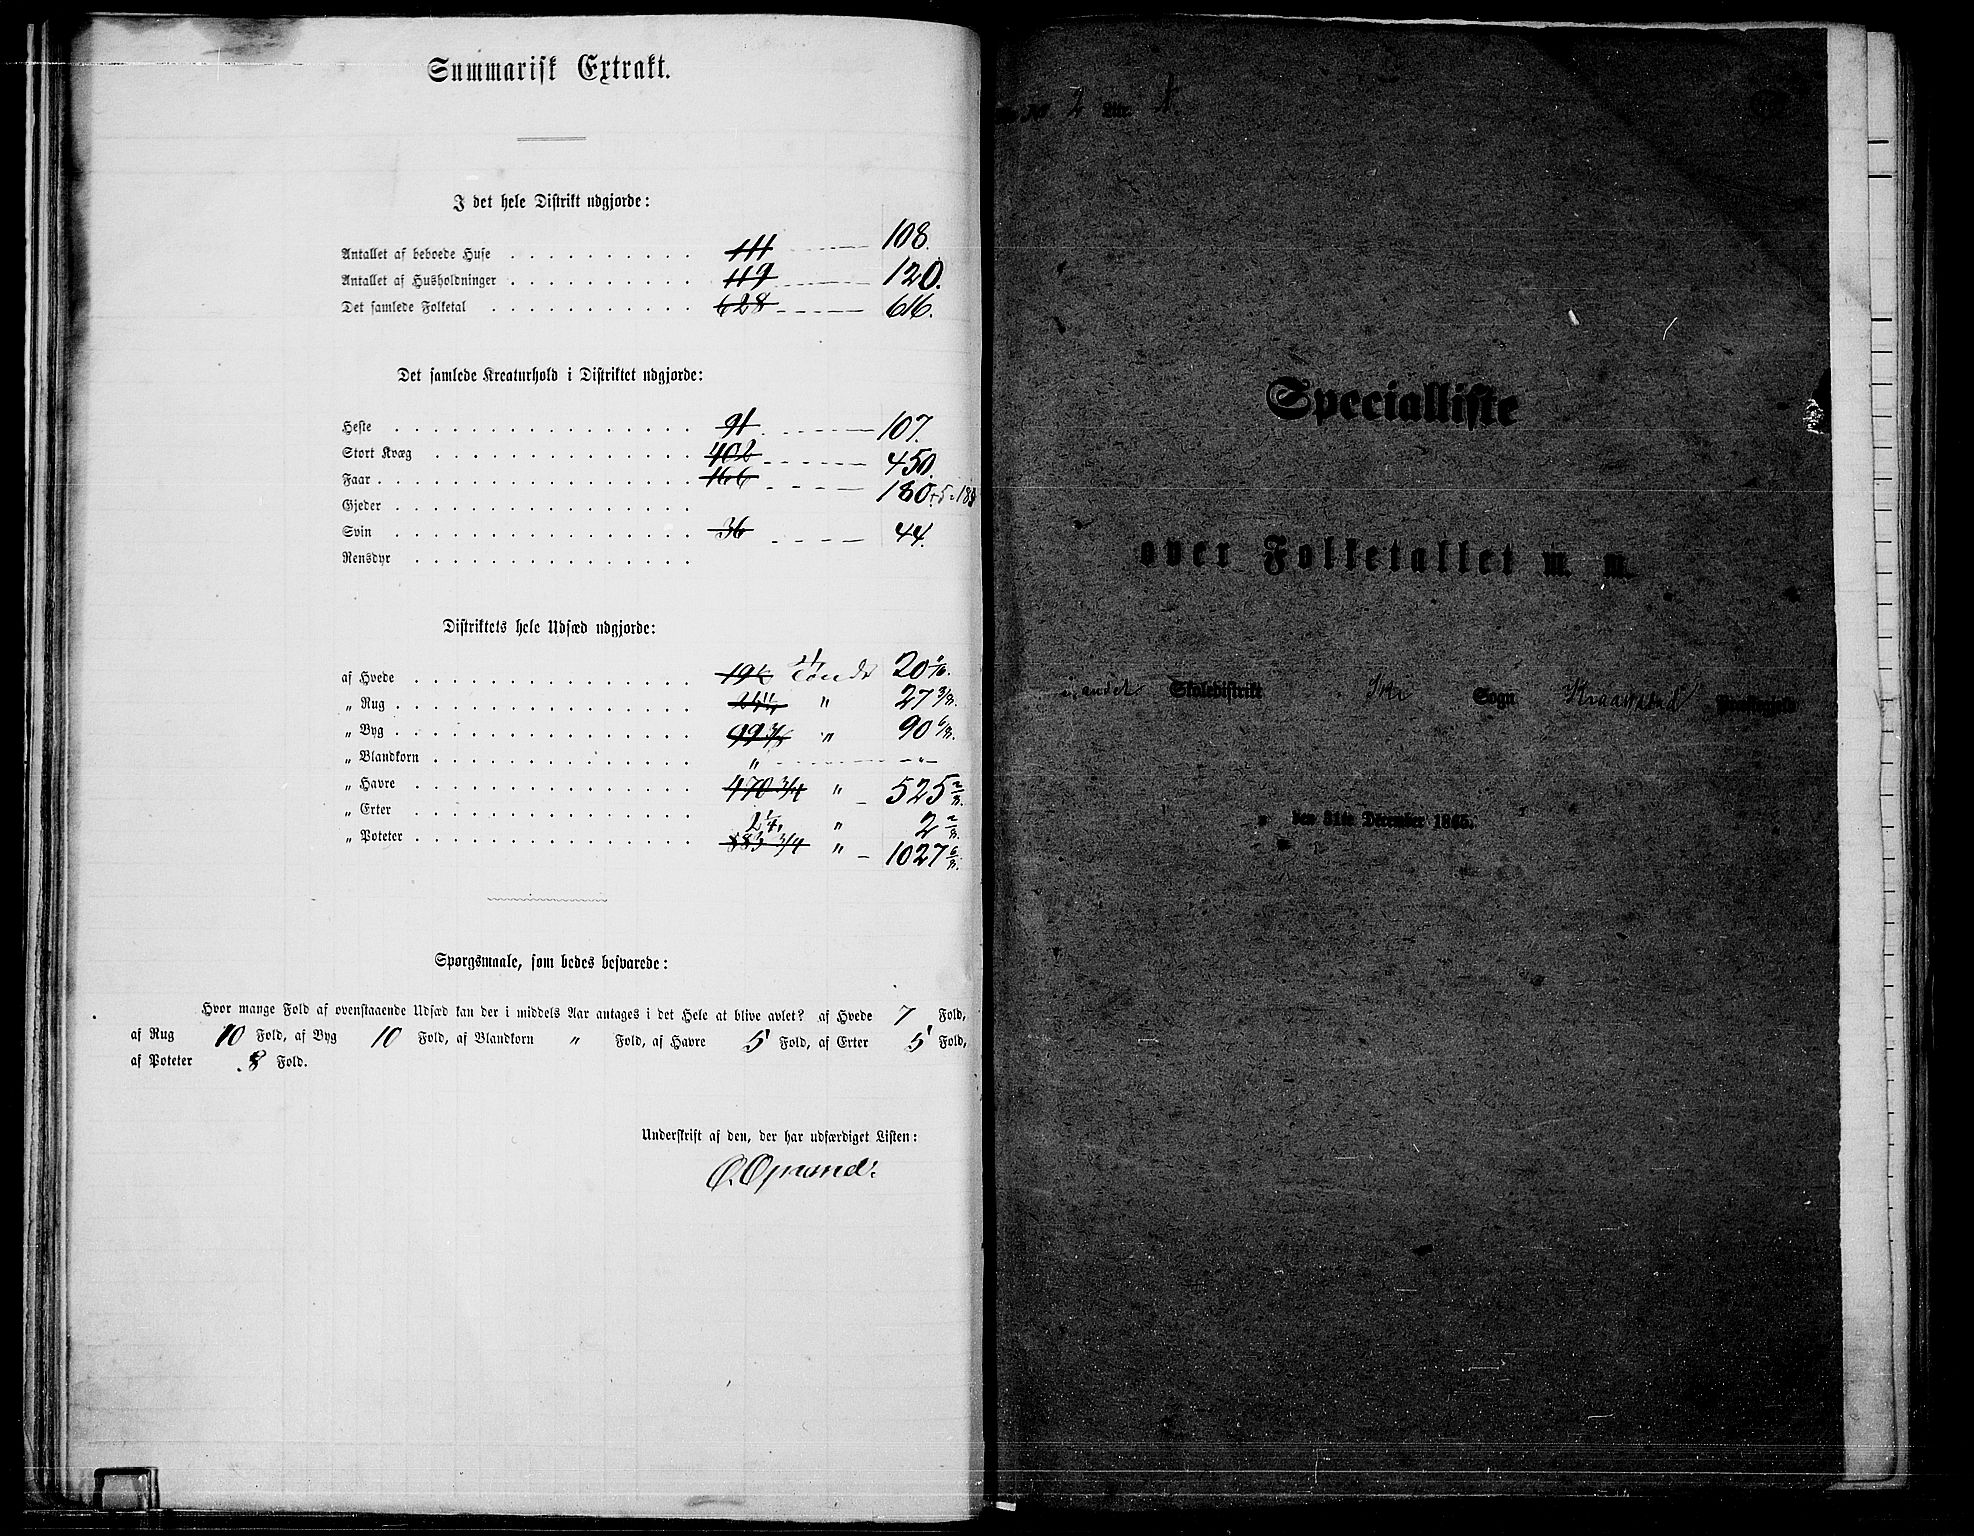 Summarisk Extrakt.
I det hele Distrikt udgjorde:
Antallet af beboede Huse 111 108.
Antallet af Husholdninger 119 120.
Det samlede Folketal 628 616.
Det samlede Kreaturhold i Distriktet udgjorde:
Heste 91 107.
Stort Kvæg 402 450.
Faar 166 180+5=185
Gjeder
Svin 36 44.
Rensdyr
Distriktets hele Udsæd udgjorde:
af Hvede 20
„ Rug " 27 3/8.
„ Byg 99 3/4 " 90 6/8.
„ Blandkorn " "
„ Havre 470 3/4 " 525 2/8.
„ Erter 2 1/4 " 2 2/8.
„ Poteter 883 3/4 " 1027 6/8.
Spørgsmaale, som bedes besvarede:
Hvor mange Fold af ovenstaaende Udsæd kan der i middels Aar antages i det Hele at blive avlet? af Hvede 7 Fold,
af Rug 10 Fold, af Byg 10 Fold, af Blandkorn " Fold, af Havre 5 Fold, af Erter 5 Fold,
af Poteter 8 Fold.
Underskrift af den, der har udfærdiget Listen:
No 2 Litr.
Specialliste
over Folketallet m. m.
i andet Skoledistrikt Sogn Kraakstad Præstegjeld
den 31te December 1865.